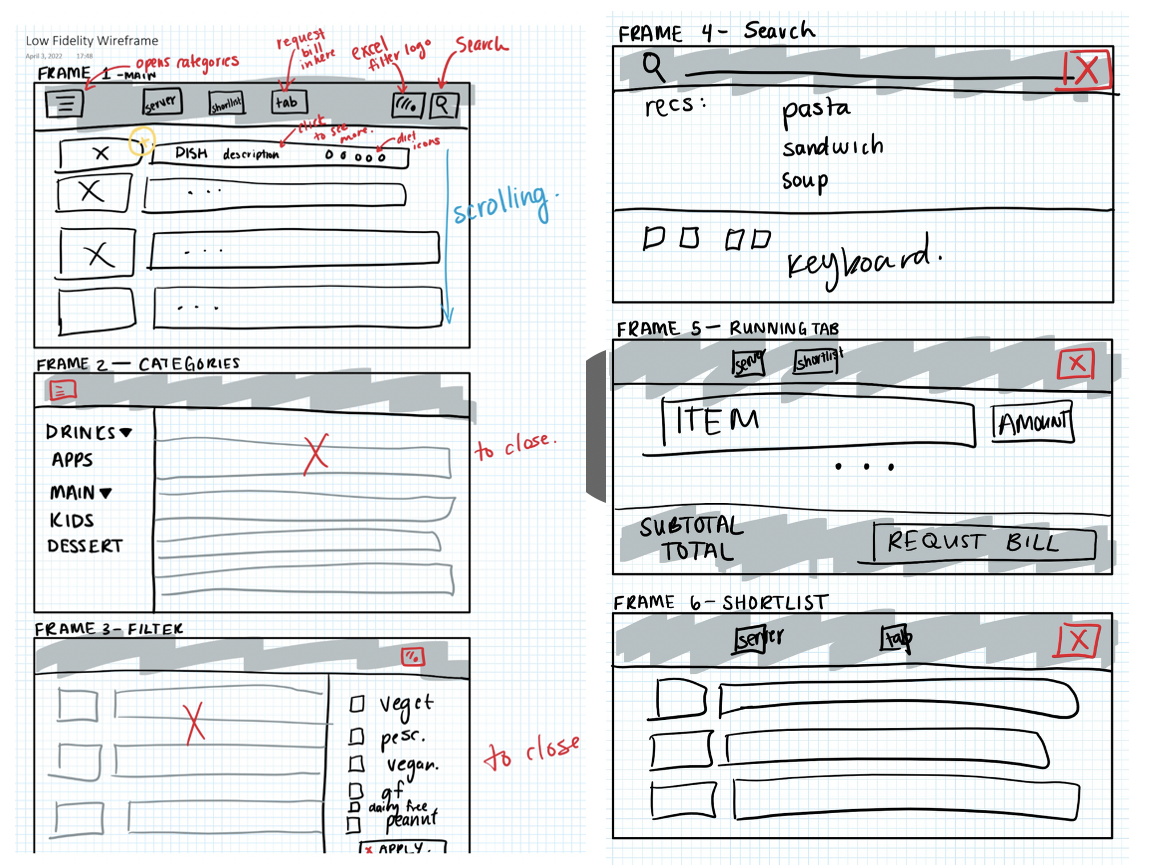 Low Fidelity Wireframe
April 3, 2022 17:48
FRAME 1 - MAIN
opens categories
request
bill
in here
excel
filter logo
Search
server
shortlist
tab
click
to see
more.
diet
icons
DISH description
. . .
. . .
. . .
scrolling.
FRAME 2 — CATEGORIES
DRINKS ▼
APPS
MAIN ▼
KIDS
DESSERT
X
to close.
FRAME 3 - FILTER
X
veget
pesc.
vegan.
gf
dairy free
peanut
x APPLY.
to close
FRAME 4 - Search
X
recs:
pasta
sandwich
soup
keyboard.
FRAME 5 — RUNNING TAB
server
shortlist
X
ITEM
AMOUNT
. . .
SUBTOTAL
TOTAL
REQUST BILL
FRAME 6 - SHORTLIST
server
tab
X